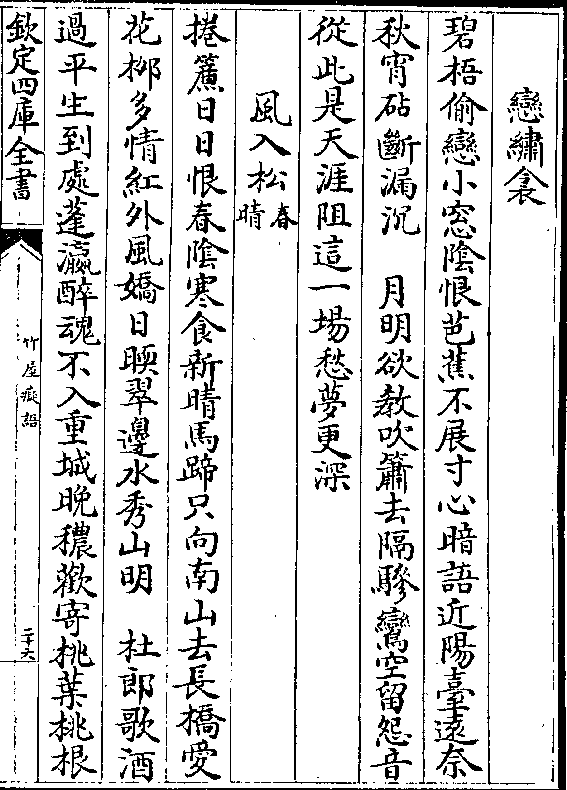 戀繡衾
碧梧偷戀小窓陰恨芭蕉不展寸心暗語近陽臺逺奈
秋宵砧斷漏沉　月明欲教吹簫去隔驂鸞空留怨音
從此是天涯阻這一場愁夢更深
風入松春晴
捲簾日日恨春陰寒食新晴馬蹄只向南山去長橋愛
花柳多情紅外風嬌日暖翠邊水秀山明　杜郎歌酒
過平生到處蓬瀛醉魂不入重城晚穠歡寄桃葉桃根
欽定四庫全書
竹屋癡語
二十六